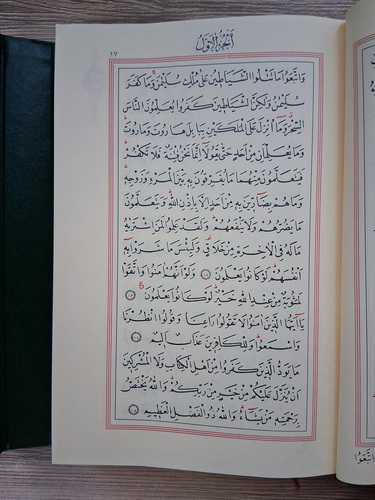 الجزء الاول
١٧
وَاتَّبَعُوا مَا تَتْلُوا الشَّيَاطِينُ عَلٰى مُلْكِ سُلَيْمٰنَ وَمَا كَفَرَ
سُلَيْمٰنُ وَلٰكِنَّ الشَّيَاطِينَ كَفَرُوا يُعَلِّمُونَ النَّاسَ
السِّحْرَ وَمَا اُنْزِلَ عَلَى الْمَلَكَيْنِ بِبَابِلَ هَارُوتَ وَمَارُوتَ
وَمَا يُعَلِّمَانِ مِنْ اَحَدٍ حَتّٰى يَقُولَا اِنَّمَا نَحْنُ فِتْنَةٌ فَلَا تَكْفُرْ
فَيَتَعَلَّمُونَ مِنْهُمَا مَا يُفَرِّقُونَ بِهِ بَيْنَ الْمَرْءِ وَزَوْجِهِ
وَمَا هُمْ بِضَارِّينَ بِهِ مِنْ اَحَدٍ اِلَّا بِاِذْنِ اللّٰهِ وَيَتَعَلَّمُونَ
مَا يَضُرُّهُمْ وَلَا يَنْفَعُهُمْ وَلَقَدْ عَلِمُوا لَمَنِ اشْتَرٰيهُ
مَا لَهُ فِي الْاٰخِرَةِ مِنْ خَلَاقٍ وَلَبِئْسَ مَا شَرَوْا بِهِ
اَنْفُسَهُمْ لَوْ كَانُوا يَعْلَمُونَ ١٠٢ وَلَوْ اَنَّهُمْ اٰمَنُوا وَاتَّقَوْا
لَمَثُوبَةٌ مِنْ عِنْدِ اللّٰهِ خَيْرٌ لَوْ كَانُوا يَعْلَمُونَ ١٠٣
يَا اَيُّهَا الَّذِينَ اٰمَنُوا لَا تَقُولُوا رَاعِنَا وَقُولُوا انْظُرْنَا
وَاسْمَعُوا وَلِلْكَافِرِينَ عَذَابٌ اَلِيمٌ ١٠٤
مَا يَوَدُّ الَّذِينَ كَفَرُوا مِنْ اَهْلِ الْكِتَابِ وَلَا الْمُشْرِكِينَ
اَنْ يُنَزَّلَ عَلَيْكُمْ مِنْ خَيْرٍ مِنْ رَبِّكُمْ وَاللّٰهُ يَخْتَصُّ
بِرَحْمَتِهِ مَنْ يَشَاءُ وَاللّٰهُ ذُو الْفَضْلِ الْعَظِيمِ ١٠٥